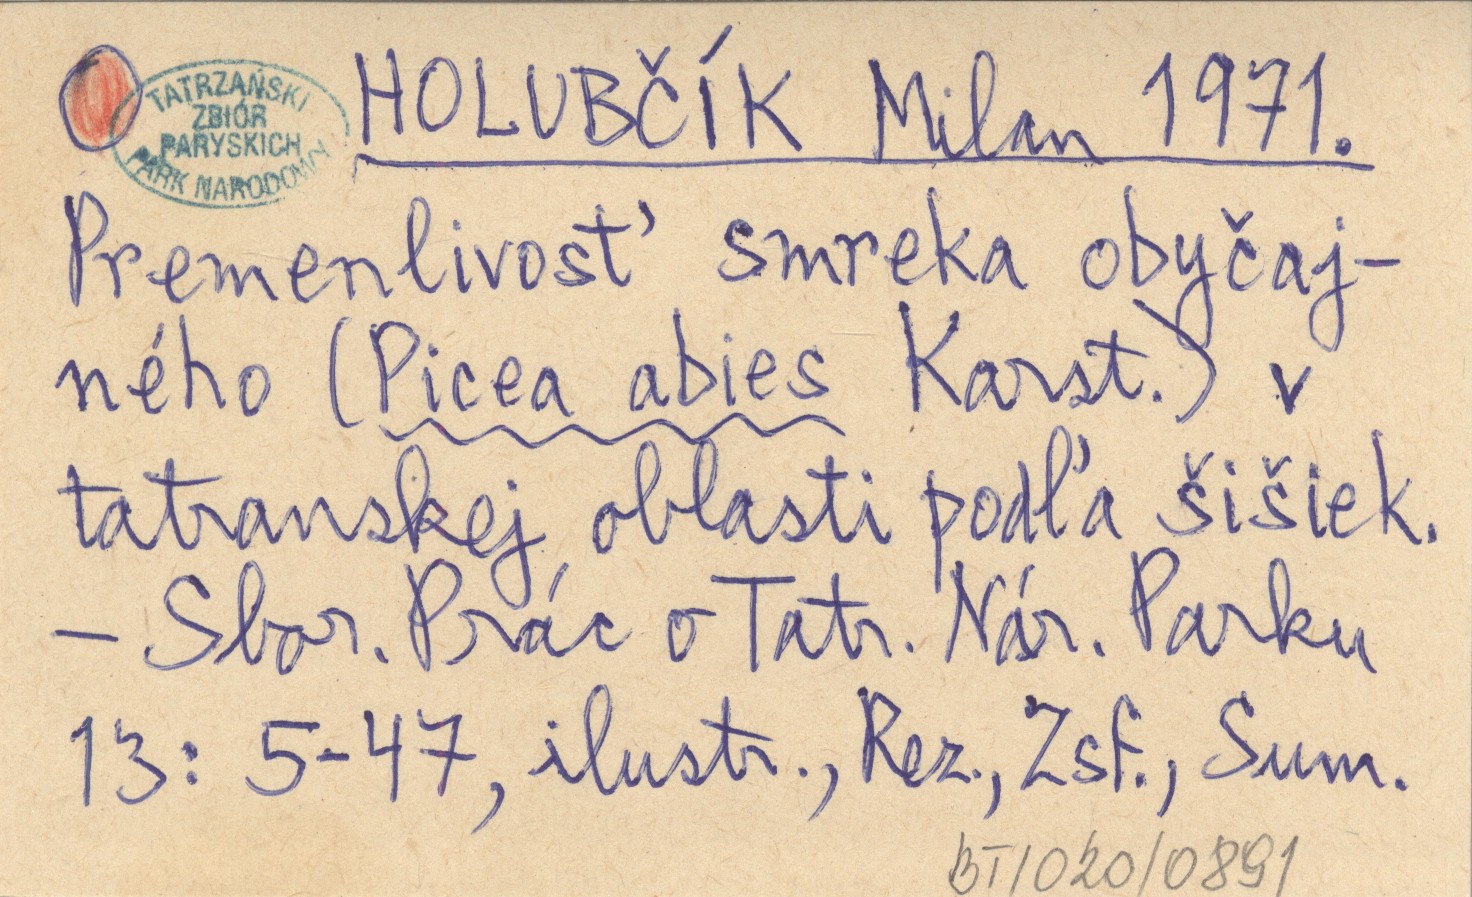 TATRZAŃSKI
ZBIÓR
PARYSKICH
PARK NARODOWY
HOLUBČÍK Milan 1971.
Premenlivosť smreka obyčaj-
ného (Picea abies Karst.) v
tatranskej oblasti podľa šišiek.
– Sbor. Prác o Tatr. Nár. Parku
13: 5-47, ilustr., Rez., Zsf., Sum.
BT/020/0891